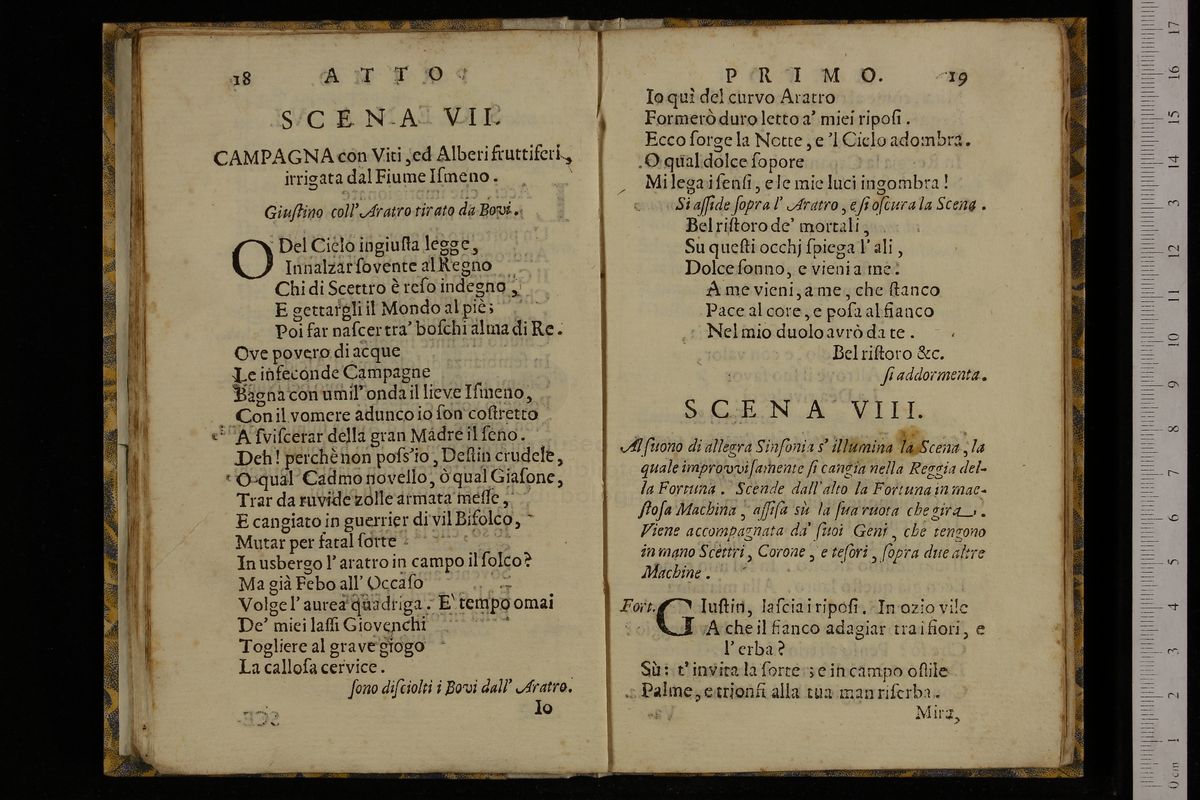 18 ATTO
SCENA VII.
CAMPAGNA con Viti, ed Alberi fruttiferi,
irrigata dal Fiume Iſmeno.
Giuſtino coll' Aratro tirato da Bovi.
O Del Cielo ingiuſta legge,
Innalzar ſovente al Regno
Chi di Scettro è reſo indegno,
E gettargli il Mondo al piè;
Poi far naſcer tra' boſchi alma di Re.
Ove povero di acque
Le infeconde Campagne
Bagna con umil' onda il lieve Iſmeno,
Con il vomere adunco io ſon coſtretto
A ſviſcerar della gran Madre il ſeno.
Deh! perchè non poſs'io, Deſtin crudele,
O qual Cadmo novello, ò qual Giaſone,
Trar da ruvide zolle armata meſſe,
E cangiato in guerrier di vil Bifolco,
Mutar per fatal ſorte
In usbergo l' aratro in campo il ſolco?
Ma già Febo all' Occaſo
Volge l' aurea quadriga. E' tempo omai
De' miei laſſi Giovenchi
Togliere al grave giogo
La calloſa cervice.
ſono diſciolti i Bovi dall' Aratro.
Io
PRIMO. 19
Io quì del curvo Aratro
Formerò duro letto a' miei ripoſi.
Ecco ſorge la Notte, e 'l Cielo adombra.
O qual dolce ſopore
Mi lega i ſenſi, e le mie luci ingombra!
Si aſſide ſopra l' Aratro, e ſi oſcura la Scena.
Bel riſtoro de' mortali,
Su queſti occhj ſpiega l' ali,
Dolce ſonno, e vieni a me.
A me vieni, a me, che ſtanco
Pace al core, e poſa al fianco
Nel mio duolo avrò da te.
Bel riſtoro &c.
ſi addormenta.
SCENA VIII.
Al ſuono di allegra Sinfonia s' illumina la Scena, la
quale improvviſamente ſi cangia nella Reggia del-
la Fortuna. Scende dall' alto la Fortuna in mae-
ſtoſa Machina, aſſiſa sù la ſua ruota che gira.
Viene accompagnata da' ſuoi Genj, che tengono
in mano Scettri, Corone, e teſori, ſopra due altre
Machine.
Fort. GIuſtin, laſcia i ripoſi. In ozio vile
A che il fianco adagiar tra i fiori, e
l' erba?
Sù: t' invita la ſorte; e in campo oſtile
Palme, e trionfi alla tua man riſerba.
Mira,